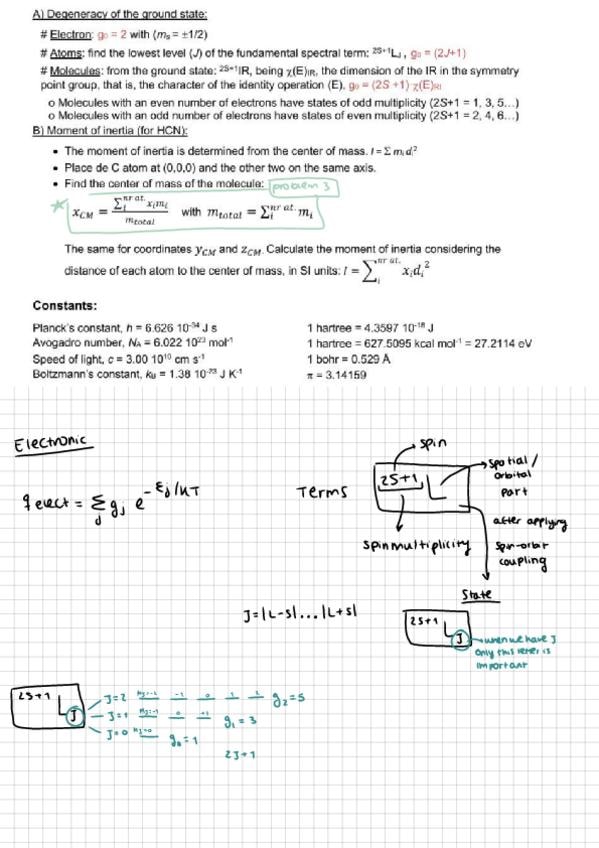 A) Degeneracy of the ground state:
# Electron: g₀ = 2 with (mₛ = ±1/2)
# Atoms: find the lowest level (J) of the fundamental spectral term: ²ˢ⁺¹L_J, g₀ = (2J+1)
# Molecules: from the ground state: ²ˢ⁺¹IR, being χ(E)IR, the dimension of the IR in the symmetry
point group, that is, the character of the identity operation (E), g₀ = (2S +1) χ(E)RI
o Molecules with an even number of electrons have states of odd multiplicity (2S+1 = 1, 3, 5...)
o Molecules with an odd number of electrons have states of even multiplicity (2S+1 = 2, 4, 6...)
B) Moment of inertia (for HCN):
• The moment of inertia is determined from the center of mass. I = Σ mᵢdᵢ²
• Place de C atom at (0,0,0) and the other two on the same axis.
• Find the center of mass of the molecule: problem 3
x_CM = Σᵢ^{nr at.} xᵢmᵢ / m_total with m_total = Σᵢ^{nr at.} mᵢ
The same for coordinates y_CM and z_CM. Calculate the moment of inertia considering the
distance of each atom to the center of mass, in SI units: I = Σᵢ^{nr at.} xᵢdᵢ²
Constants:
Planck's constant, h = 6.626 10⁻³⁴ J s
Avogadro number, N_A = 6.022 10²³ mol⁻¹
Speed of light, c = 3.00 10¹⁰ cm s⁻¹
Boltzmann's constant, k_B = 1.38 10⁻²³ J K⁻¹
1 hartree = 4.3597 10⁻¹⁸ J
1 hartree = 627.5095 kcal mol⁻¹ = 27.2114 eV
1 bohr = 0.529 Å
π = 3.14159
Electronic
q elect = Σⱼ gⱼ e^{-εⱼ/kT}
Terms
2S+1 L
spin
spatial /
orbital
part
spin multiplicity
after applying
spin-orbit
coupling
State
J=|L-S|...|L+S|
2S+1 L J
when we have J
only this letter is
important
2S+1 L J
J=2 -1 0 1 2 g₂=5
J=1 0 +1 g₁=3
J=0 g₀=1
2J+1